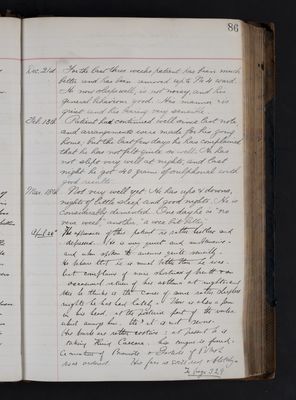 86
Dec. 21st. For the last three weeks patient has been much
better and has been removed up to No 4 ward.
He now sleeps well, is not noisy, and his
general behaviour good. His manner is
quiet and his having very sensible
Feb. 13th. Patient had continued well since last note
and arrangements were made for his going
home, but the last few days he has complained
that he has not felt quite so well. He has
not slept very well at nights, and last
night he got 40 grains of sulphonal with
good results.
Mar. 18th. Not very well yet. He has ups & downs,
nights of little sleep and good nights. He is
considerably demented. One day he is "no
very weel", another "a wee bit better".
The advance of this patient is rather better and
depressed. He is very quiet and
and when spoken to answers quite
He states that he is much better than he was
but complains of some shortness of breath & an
occasional return of his asthma at night, and
this he thinks is the cause of some rather sleepless
nights he has had lately. There is also a pain
in his head, at the
which annoys him.
His bowels are rather costive: at present he is
taking Fluid Cascara. His tongue is furred.
A mixture of Bromide & Iodide of Potash
was ordered.
To page 329